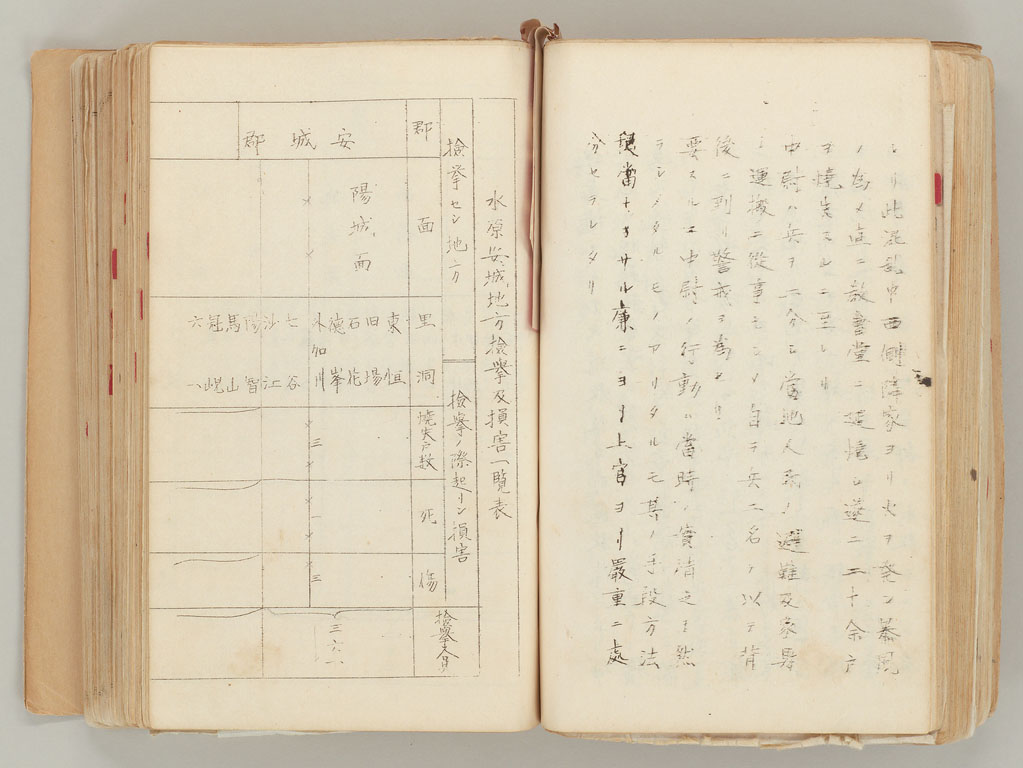 シリ此混乱中西側隣家ヨリ火ヲ発シ暴風
ノ為メ直ニ教会堂ニ延焼シ遂ニ二十余戸
ヲ焼失スルニ至レリ
中尉ハ兵ヲ二分シ当地人民ノ避難及家具
ノ運搬ニ従事セシメ自ラ兵二名ヲ以テ背
後ニ到リ警戒ヲ為セリ
要スルニ中尉ノ行動ハ當時ノ實情之ヲ然
ラシメタルモノアリタルモ其ノ手段方法
穏當ナラサル廉ニヨリ上官ヨリ嚴重ニ處
分セラレタリ
水原安城地方檢擧及損害一覧表
檢擧セシ地方
檢擧ノ際起リシ損害
檢擧人員
郡
面
里洞
焼失戸数
死
傷
安城郡
陽城面
東恒
旧場
石花
德峯
外加川
七谷
沙江
陽智
馬山
冠峴
六一
三
一
三